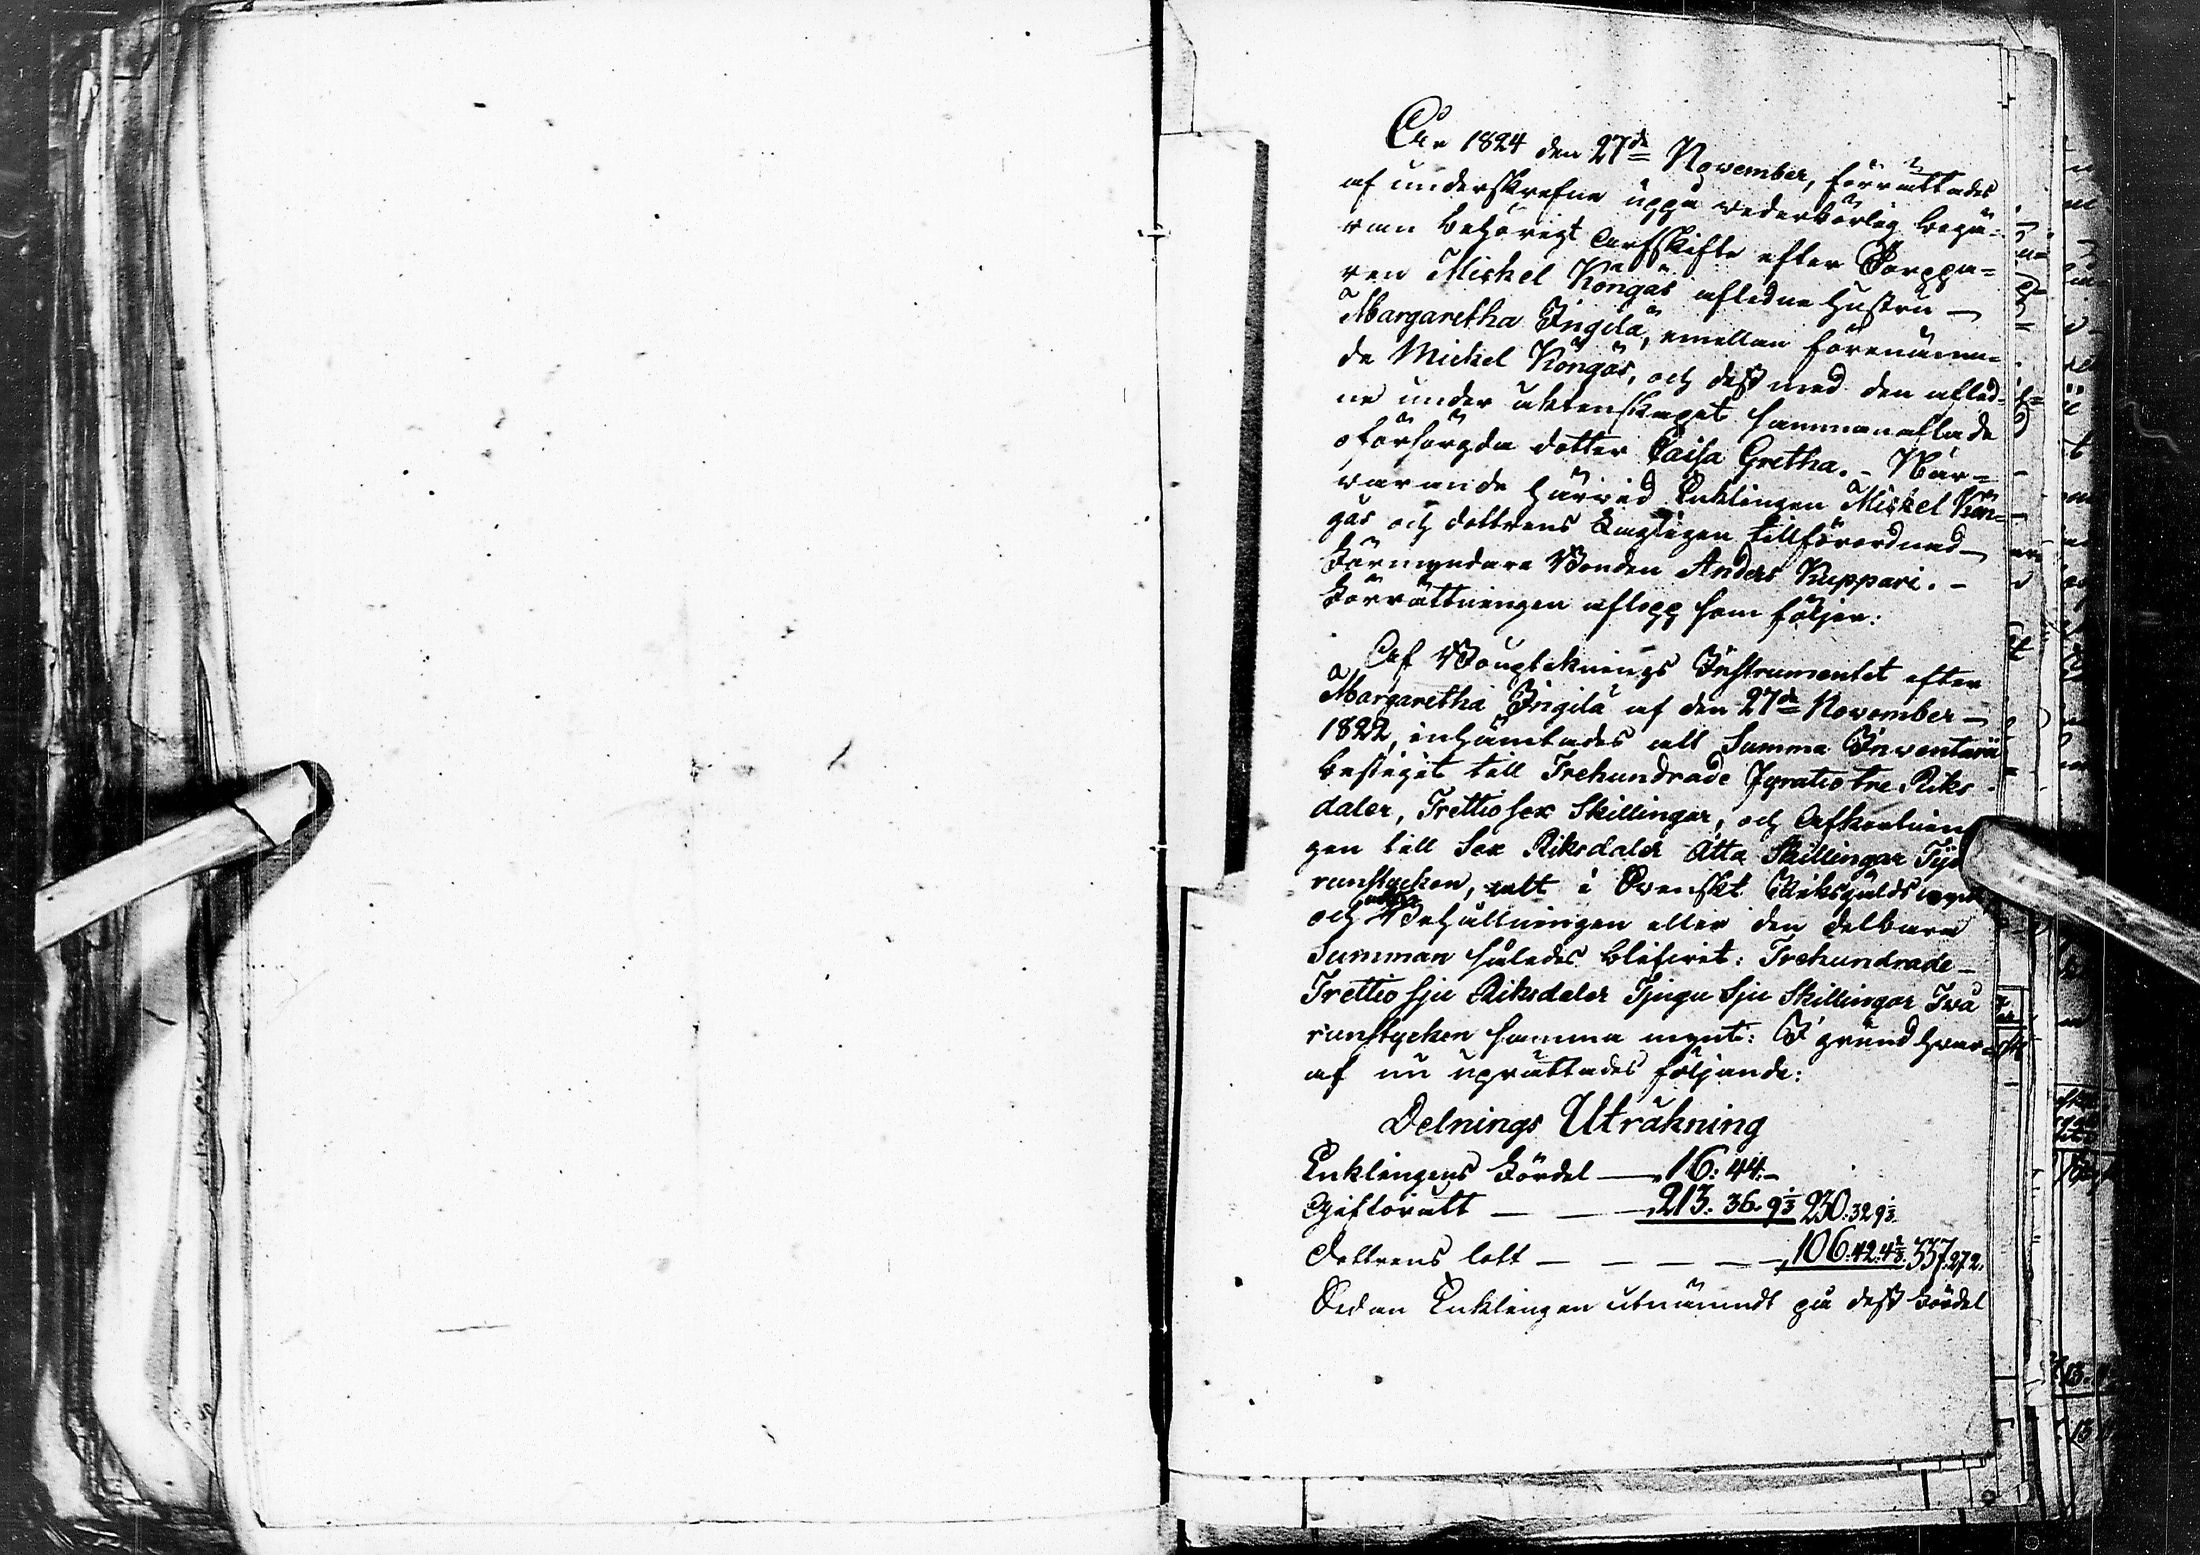 År 1824 den 27de November, förrättades
af underskrefne uppå wederbörlig begä-
ran behörigt Arfskifte efter Torppa-
ren Mickel Köngäs aflidne Hustru
Margaretha Ingilä, emellan förenämn-
de Mickel Köngäs, och dess med den aflid-
ne under äktenskapet sammanaflade
oförsörgda dotter Caisa Gretha. - När-
warande härwid Enklingen Mickel Kön-
gäs och dottrens Lagligen tillförordnad
Förmyndare Bonden Anders Kuppari. -
Förrättningen aflopp som följer:
Af Bouptecknings Instrumentet efter
Margaretha Ingilä af den 27de November
1822, inhämtades att Summa Inwentarii
bestigit till Trehundrade Fyratio tre Riks
daler, Trettio sex Skillingar, och Afkortnin
gen till Sex Riksdaler Åtta Skillingar Tijo
runstycken, alt i Svenskt Riksgälds
och Behållningen eller den delbara
Summan således blifwit: Trehundrade
Trettio sju Riksdaler Tjugu sju Skillingar Två
runstycken samma mynt: I grund hwar-
af nu uprättades följande:
Delnings Uträkning
Enklingens Fördel — 16: 44.-
Giftorätt — — 213. 36. 9 1/3 230: 32 9 1/3.
Dottrens lott — — — — — 106: 42. 4 2/3. 337: 27 2.
Sedan Enklingen utnämndt på dess Fördel